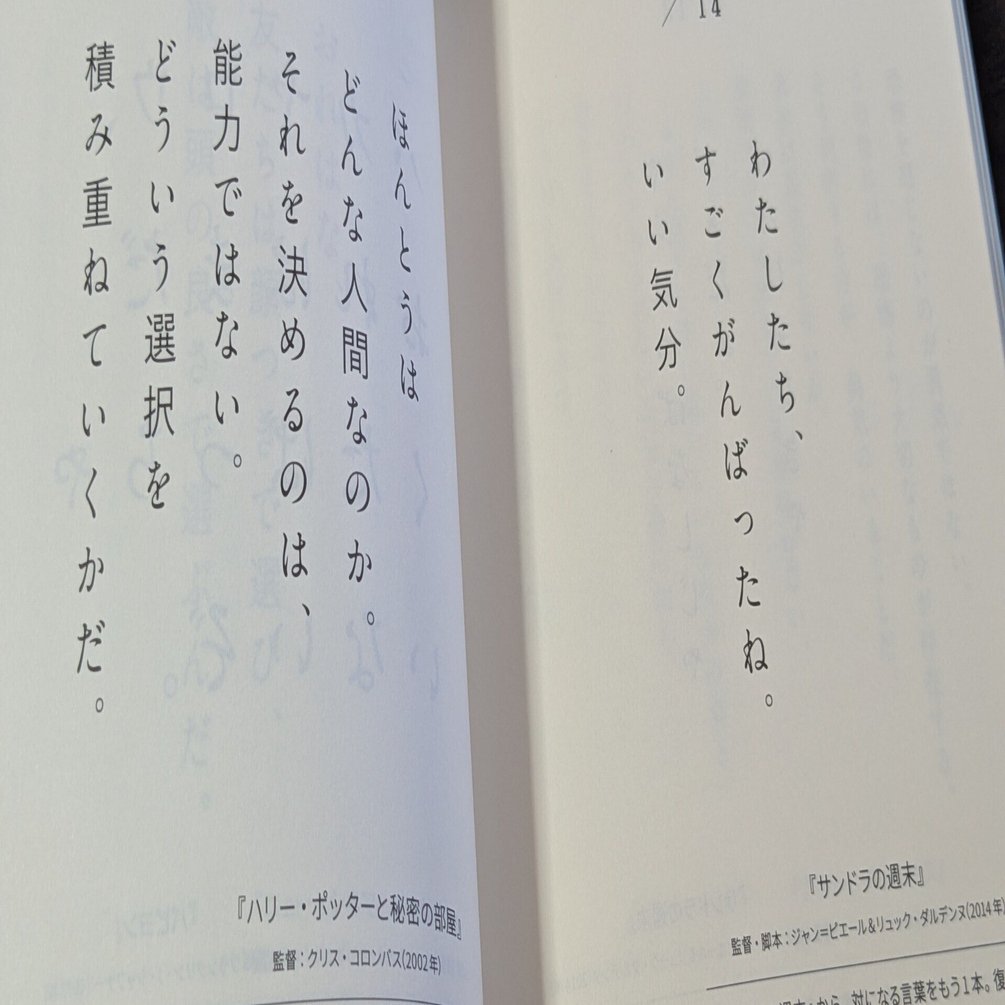 ／14
わたしたち、
すごくがんばったね。
いい気分。
『サンドラの週末』
監督・脚本：ジャン＝ピエール＆リュック・ダルデンヌ(2014年)
から、対になる言葉をもう1本。復
ほんとうは
どんな人間なのか。
それを決めるのは、
能力ではない。
どういう選択を
積み重ねていくかだ。
『ハリー・ポッターと秘密の部屋』
監督：クリス・コロンバス(2002年)